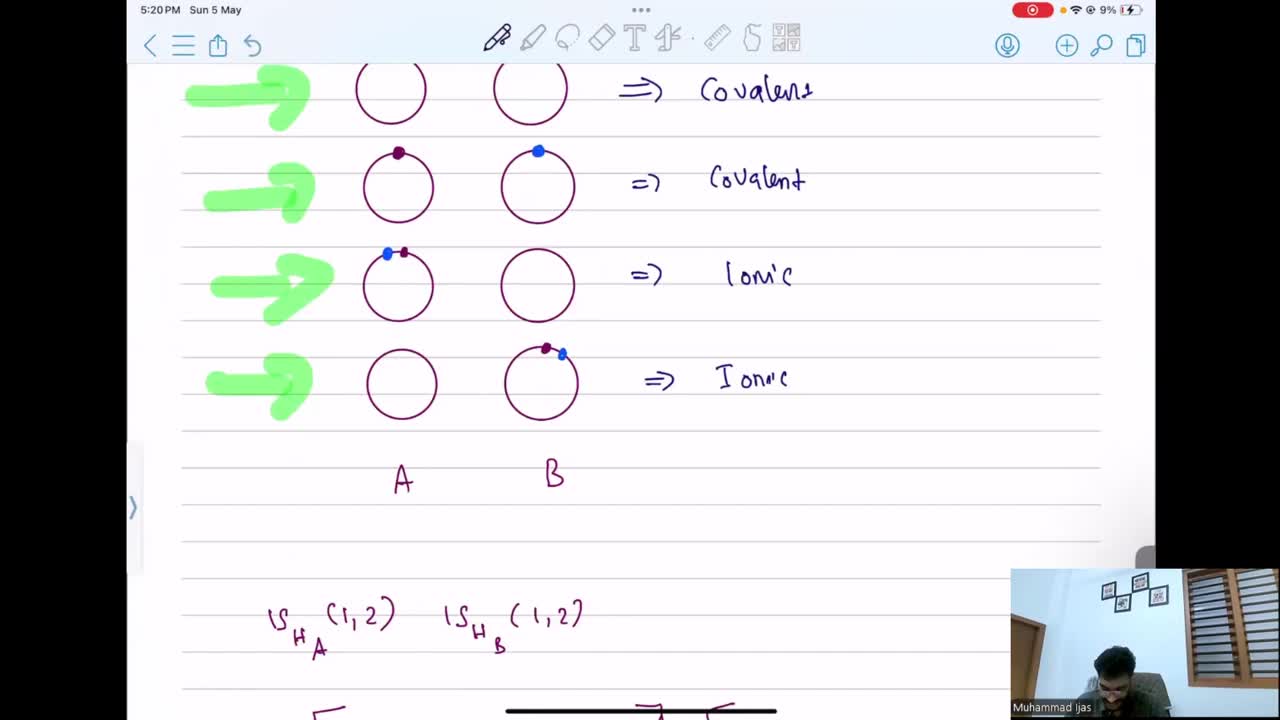 5:20 PM Sun 5 May
9%
=> Covalent
=> Covalent
=> Ionic
=> Ionic
A B
1S H A (1,2) 1S H B (1,2)
Muhammad Ijas